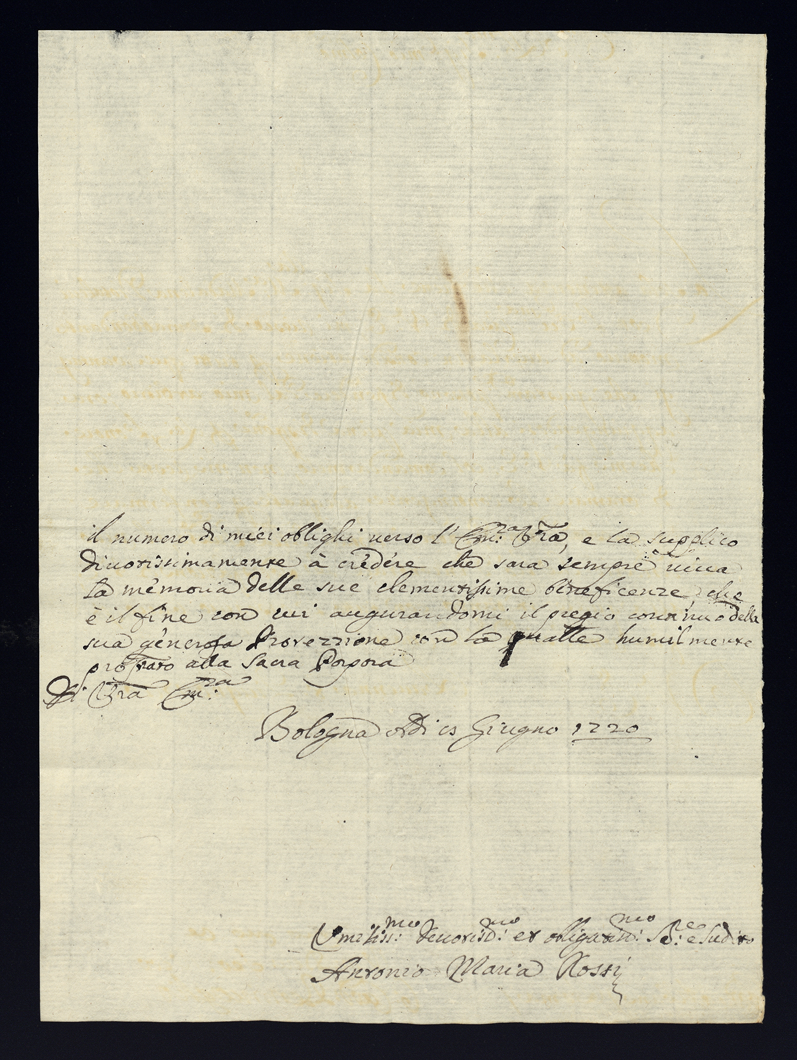 il numero di miei oblighi verso l' Em:za Vra, e la supplico
divotissimamente à credere che sara sempre viva
la memoria delle sue clementissime beneficenze che
è il fine con cui augurandomi il pregio continuo della
sua generosa Protezzione con la qualle humilmente
prostrato alla Sacra Porpora
Di Vra Em:za
Bologna Adi 15 Giugno 1720
Umiliss:mo devotis:mo et obligatis:mo Se:re e Sudito
Antonio Maria Rossi